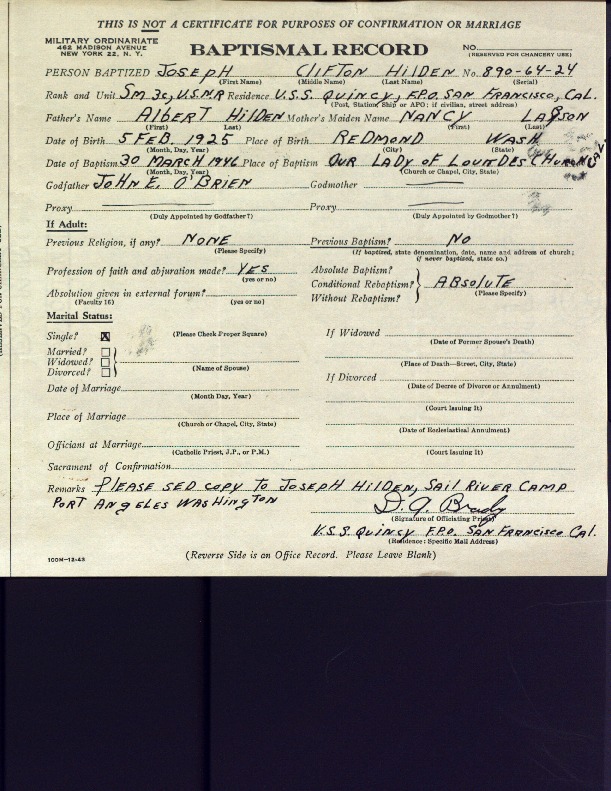 THIS IS NOT A CERTIFICATE FOR PURPOSES OF CONFIRMATION OR MARRIAGE
MILITARY ORDINARIATE
462 MADISON AVENUE
NEW YORK 22, N. Y.
BAPTISMAL RECORD
NO.
(RESERVED FOR CHANCERY USE)
PERSON BAPTIZED JOSEPH CLIFTON HILDEN No. 890-64-24
(First Name) (Middle Name) (Last Name) (Serial)
Rank and Unit SM 3c, U.S.N.R Residence U.S.S. QUINCY, F.P.O. SAN FRANCISCO, CAL.
(Post, Station, Ship or APO: if civilian, street address)
Father's Name ALBERT HILDEN Mother's Maiden Name NANCY LARSON
(First) (Last) (First) (Last)
Date of Birth 5 FEB 1925 Place of Birth REDMOND WASH
(Month, Day, Year) (City) (State)
Date of Baptism 30 MARCH 1946 Place of Baptism OUR LADY OF LOURDES CHURCH
(Month, Day, Year) (Church or Chapel, City, State)
Godfather JOHN E. O'BRIEN Godmother
Proxy Proxy
(Duly Appointed by Godfather?) (Duly Appointed by Godmother?)
If Adult:
Previous Religion, if any? NONE Previous Baptism? NO
(Please Specify) (If baptized, state denomination, date, name and address of church; if never baptized, state so.)
Profession of faith and abjuration made? YES
(yes or no)
Absolute Baptism?
Conditional Rebaptism? ABSOLUTE
Without Rebaptism? (Please Specify)
Absolution given in external forum?
(Faculty 16) (yes or no)
Marital Status:
Single? X (Please Check Proper Square)
Married?
Widowed?
Divorced?
(Name of Spouse)
If Widowed
(Date of Former Spouse's Death)
(Place of Death—Street, City, State)
Date of Marriage
(Month Day, Year)
If Divorced
(Date of Decree of Divorce or Annulment)
(Court Issuing It)
Place of Marriage
(Church or Chapel, City, State)
(Date of Ecclesiastical Annulment)
Officiant at Marriage
(Catholic Priest, J.P., or P.M.)
(Court Issuing It)
Sacrament of Confirmation
Remarks PLEASE SED COPY TO JOSEPH HILDEN, SAIL RIVER CAMP
PORT ANGELES WASHINGTON
D. A. Brady
(Signature of Officiating Priest)
U.S.S. QUINCY F.P.O. SAN FRANCISCO CAL.
(Residence: Specific Mail Address)
100M-12-43
(Reverse Side is an Office Record. Please Leave Blank)